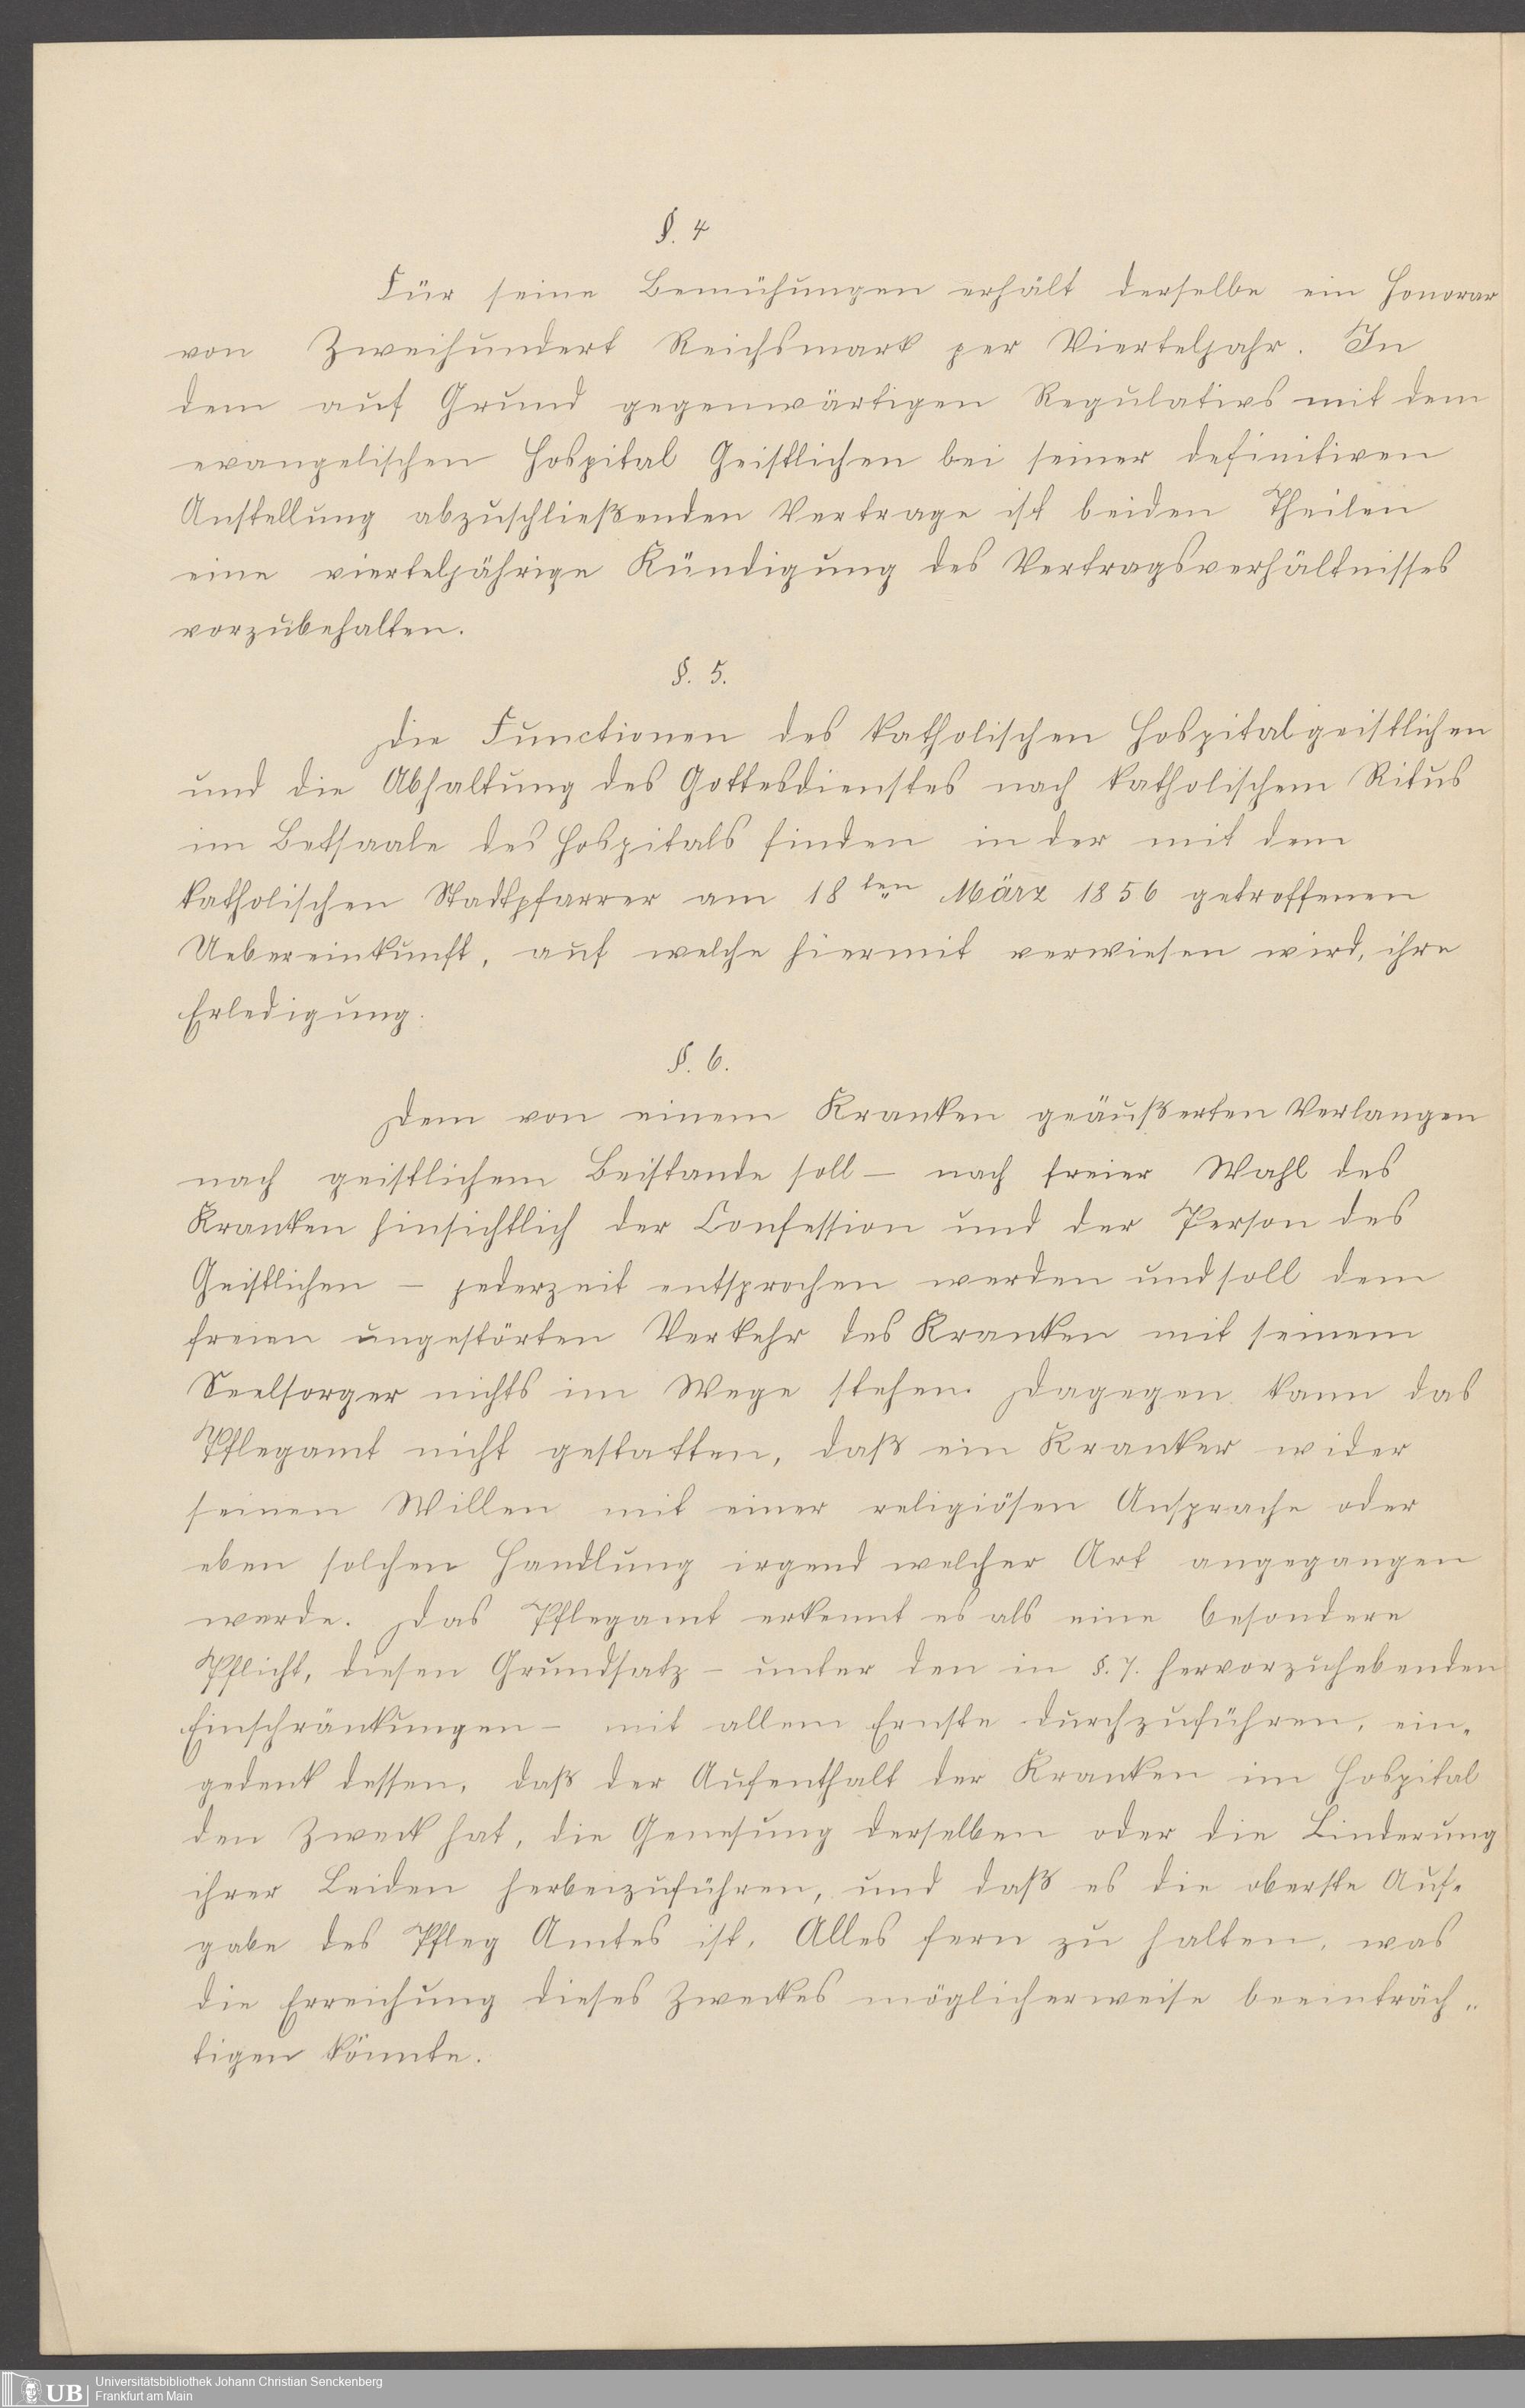 §. 4
Für seine Bemühungen erhält derselbe ein Honorar
von Zweihundert Reichsmark per Vierteljahr. In
dem auf Grund gegenwärtigen Regulativs mit dem
evangelischen Hospital Geistlichen bei seiner definitiven
Anstellung abzuschließenden Vertrage ist beiden Theilen
eine vierteljährige Kündigung des Vertragsverhältnisses
vorzubehalten.
§. 5.
Die Functionen des katholischen Hospitalgeistlichen
und die Abhaltung des Gottesdienstes nach katholischem Ritus
im Betsaale des Hospitals finden in der mit dem
katholischen Stadtpfarrer am 18ten März 1856 getroffenen
Uebereinkunft, auf welche hiermit verwiesen wird, ihre
Erledigung.
§. 6.
Dem von einem Kranken geäußerten Verlangen
nach geistlichem Beistande soll – nach freier Wahl des
Kranken hinsichtlich der Confession und der Person des
Geistlichen – jederzeit entsprochen werden und soll dem
freien ungestörten Verkehr des Kranken mit seinem
Seelsorger nichts im Wege stehen. Dagegen kann das
Pflegamt nicht gestatten, daß ein Kranker wider
seinen Willen mit einer religiösen Ansprache oder
eben solchen Handlung irgend welcher Art angegangen
werde. Das Pflegamt erkennt es als eine besondere
Pflicht, diesen Grundsatz – unter den in §. 7. hervorzuhebenden
Einschränkungen – mit allem Ernste durchzuführen, ein-
gedenk dessen, daß der Aufenthalt der Kranken im Hospital
den Zweck hat, die Genesung derselben oder die Linderung
ihrer Leiden herbeizuführen, und daß es die oberste Auf-
gabe des Pfleg Amtes ist, Alles fern zu halten, was
die Erreichung dieses Zweckes möglicherweise beeinträch-
tigen könnte.
UB
Universitätsbibliothek Johann Christian Senckenberg
Frankfurt am Main